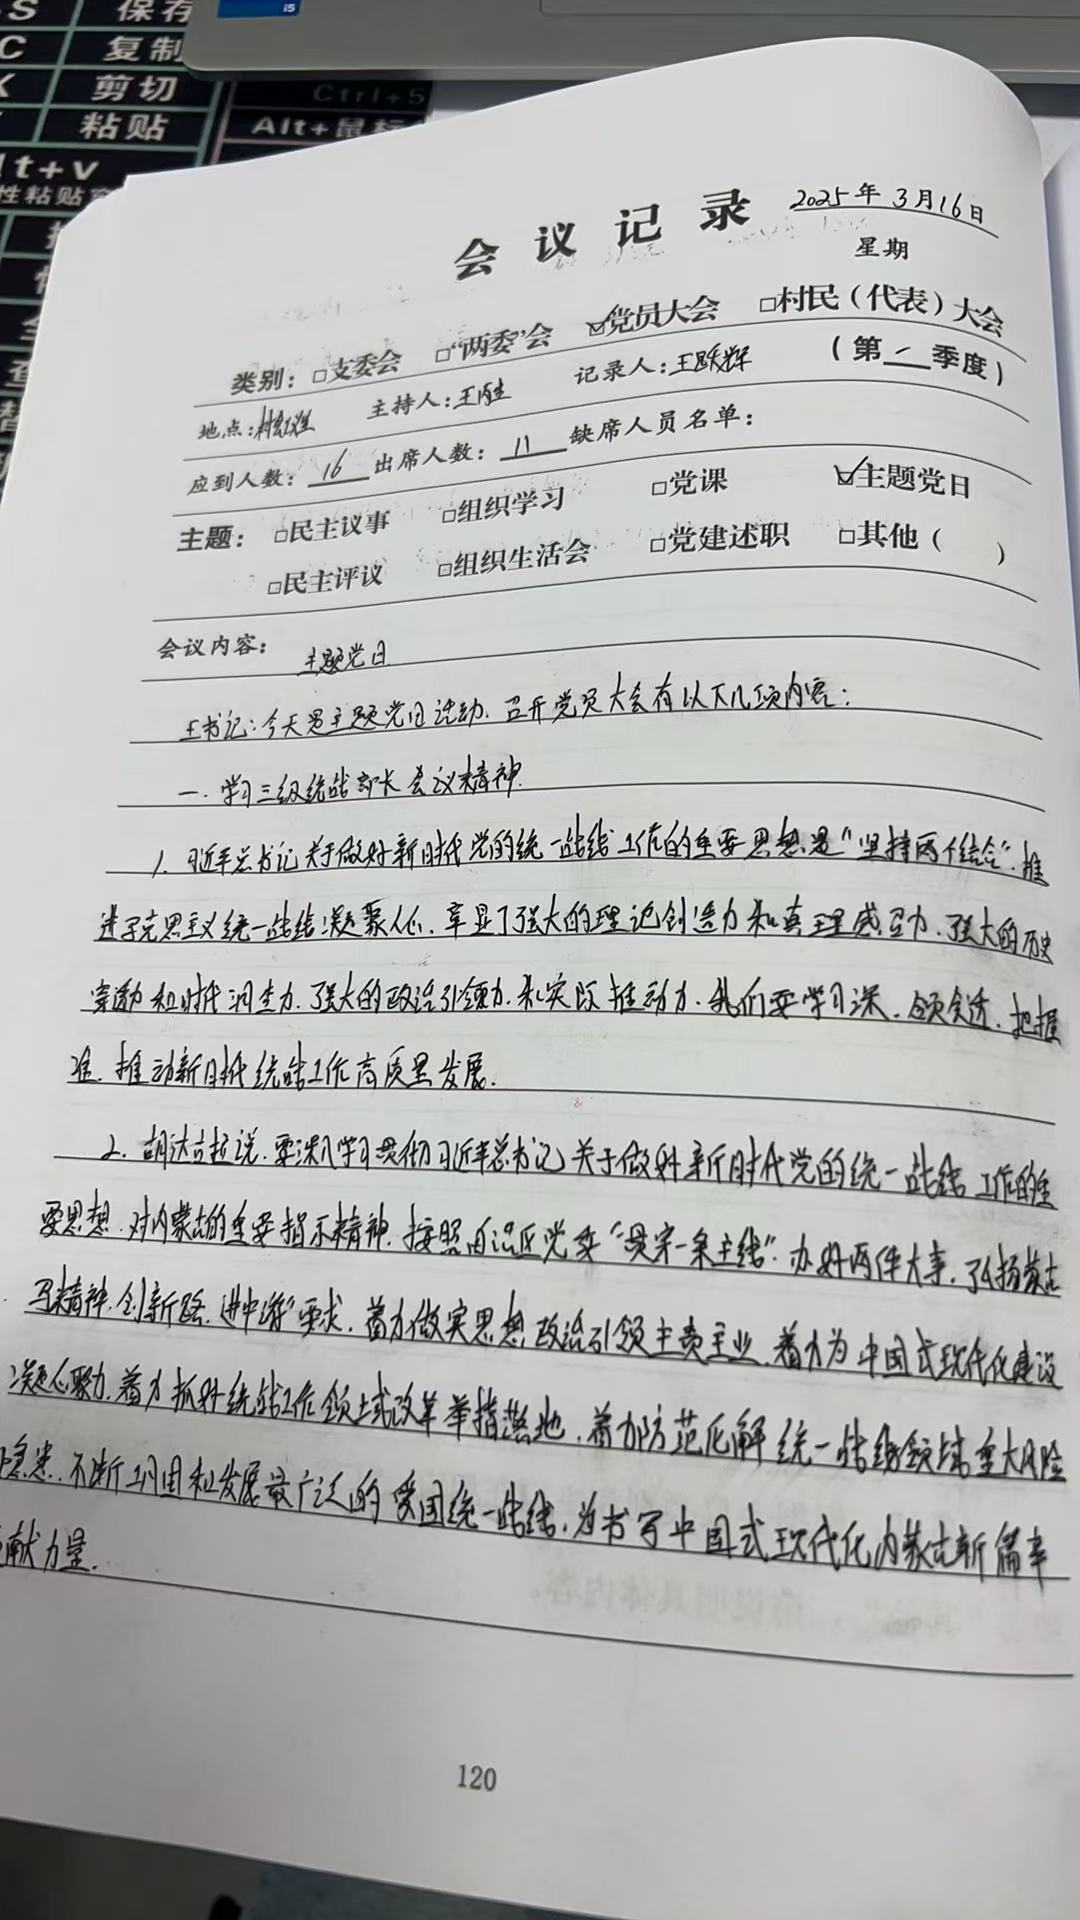 保存
复制
剪切
粘贴
Ctrl+5
Alt+鼠标
i5
会议记录
2025年3月16日
星期
类别：□支委会 □“两委”会 ☑党员大会 □村民（代表）大会
（第一季度）
地点： 主持人：王丙生 记录人：王跃辉
应到人数：16 出席人数：11 缺席人员名单：
主题：□民主议事 □组织学习 □党课 ☑主题党日
□民主评议 □组织生活会 □党建述职 □其他（ ）
会议内容： 主题党日
王书记：今天是主题党日活动、召开党员大会有以下几项内容：
一、学习三级统战部长会议精神.
1、习近平总书记关于做好新时代党的统一战线工作的重要思想是“坚持两个结合”、推
进马克思主义统一战线凝聚人心、章显了强大的理论创造力和真理感召力、强大的历史
穿透力和时代洞查力、强大的政治引领力、和实际推动力、我们要学习深、领会透、把握
准、推动新时代统战工作高质量发展.
2、胡达古拉说、要深入学习贯彻习近平总书记关于做好新时代党的统一战线工作的重
要思想、对内蒙古的重要指示精神、按照自治区党委“贯穿一条主线”、办好两件大事、弘扬蒙古
马精神、创新路、进中游”要求、着力做实思想政治引领主责主业、着力为中国式现代化建设
凝心聚力、着力抓好统战工作领域改革举措落地、着力防范化解统一战线领域重大风险
隐患、不断巩固和发展最广泛的爱国统一战线、为书写中国式现代化内蒙古新篇章
献力量.
120